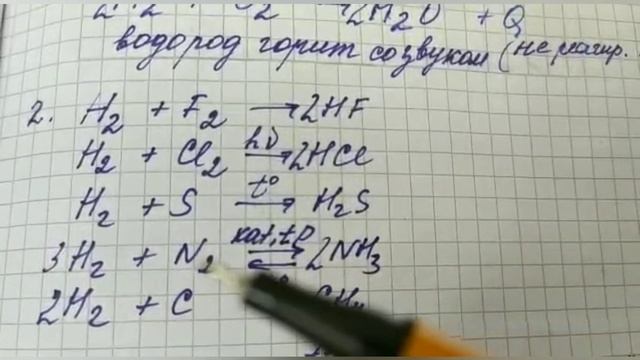 2H2O + Q
водород горит со звуком (не реагир.
2. H2 + F2 → 2HF
H2 + Cl2 hν→ 2HCl
H2 + S t°→ H2S
3H2 + N2 кат, t, p ⇄ 2NH3
2H2 + C